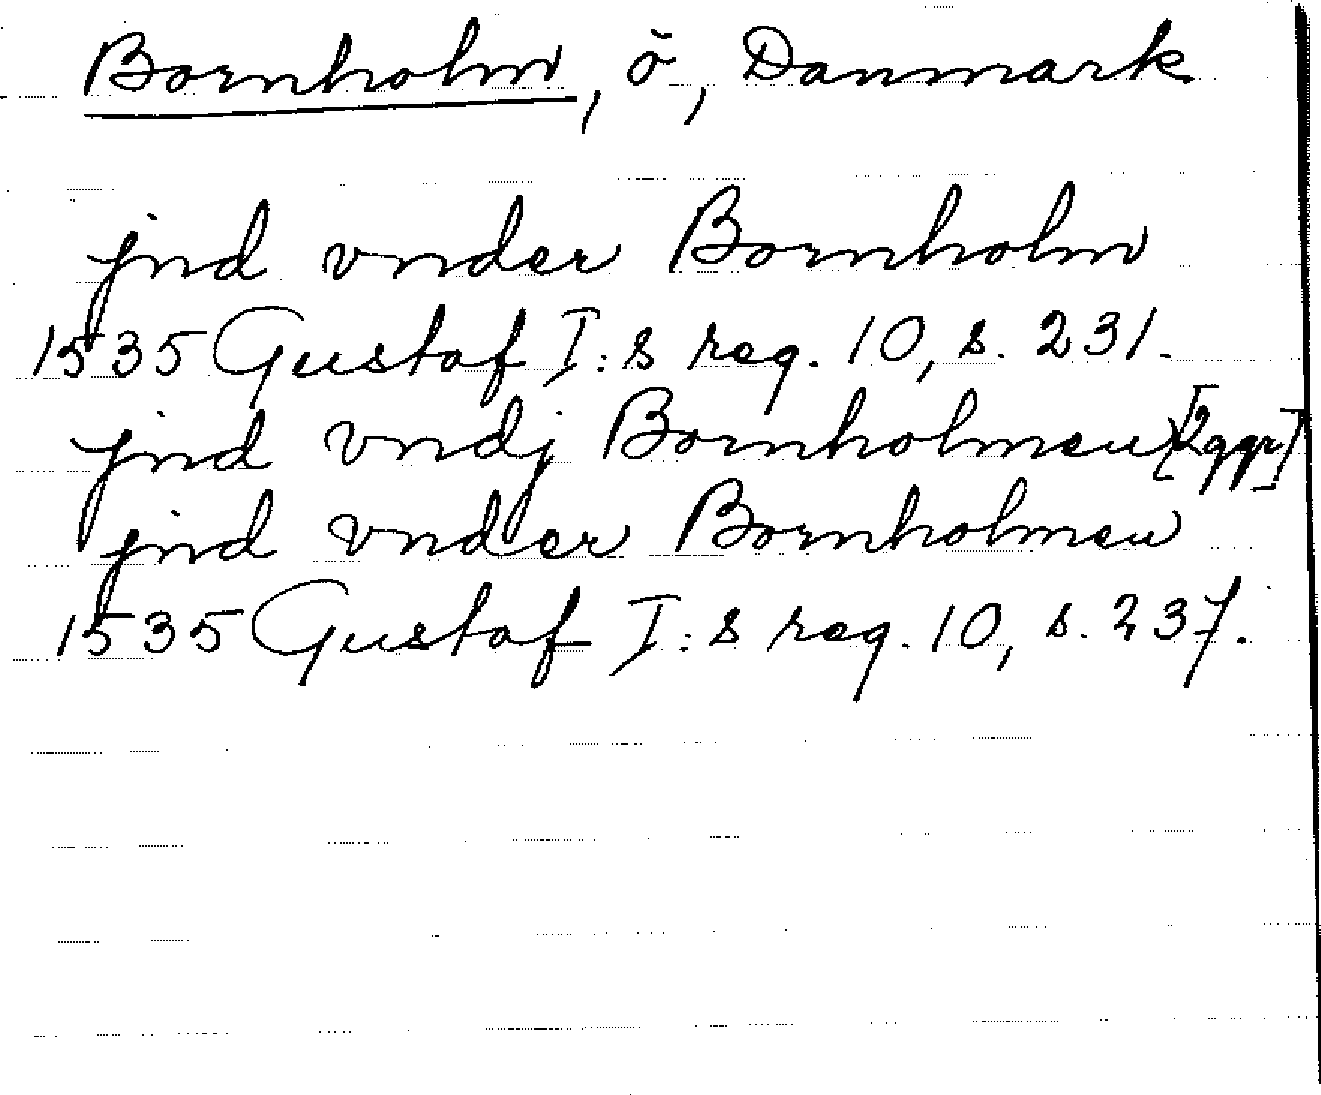 Bornholm, ö, Danmark
jnd vnder Bornholm
1535 Gustaf I:s reg. 10, s. 231.
jnd vndj Bornholmen [2 ggr]
jnd vnder Bornholmen
1535 Gustaf I:s reg. 10, s. 237.